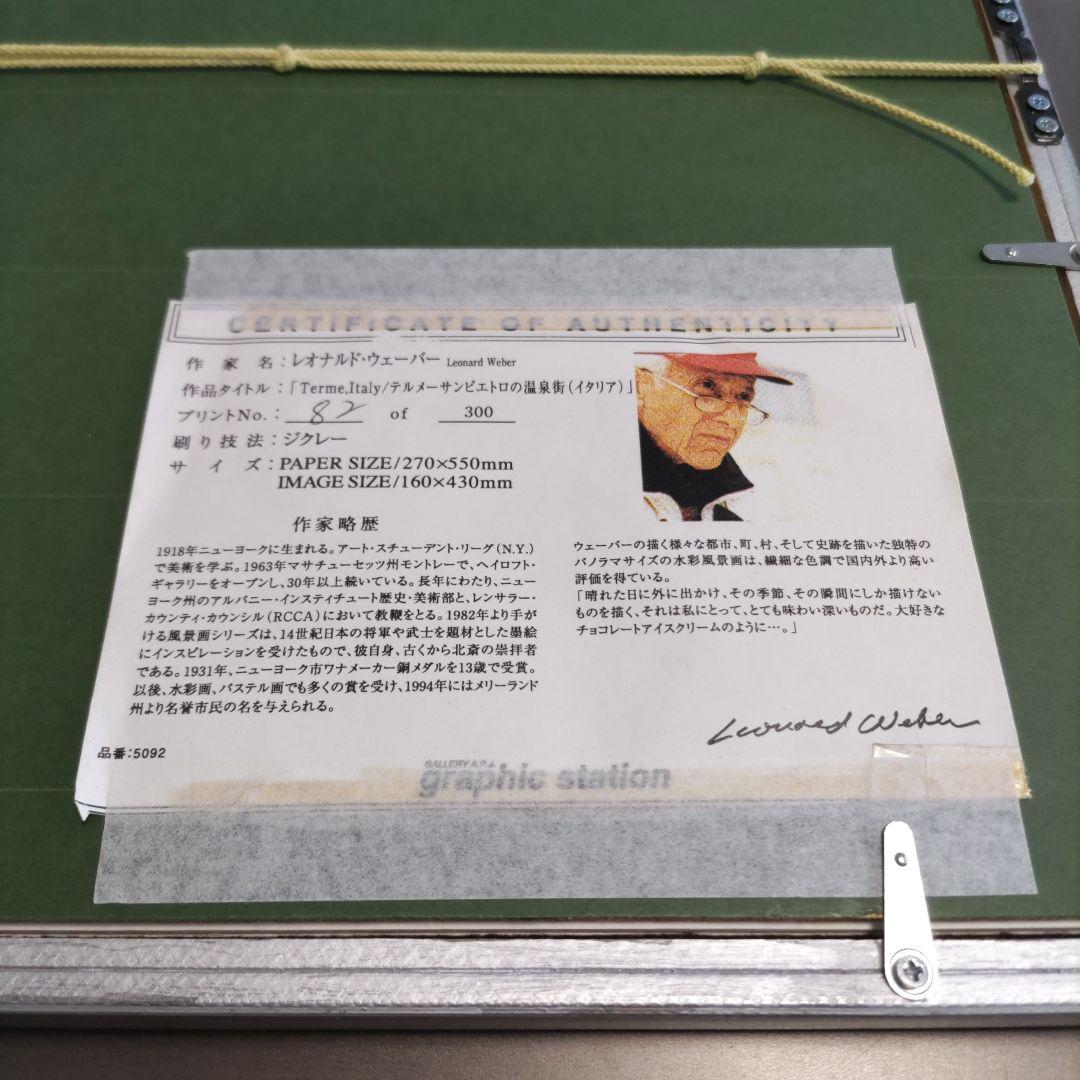 CERTIFICATE OF AUTHENTICITY
作家名：レオナルド・ウェーバー Leonard Weber
作品タイトル：「Terme,Italy/テルメーサンピエトロの温泉街(イタリア)」
プリントNo.： 82 of 300
刷り技法：ジクレー
サイズ：PAPER SIZE/270×550mm
IMAGE SIZE/160×430mm
作家略歴
1918年ニューヨークに生まれる。アート・スチューデント・リーグ(N.Y.)
で美術を学ぶ。1963年マサチューセッツ州モントレーで、ヘイロフト・
ギャラリーをオープンし、30年以上続いている。長年にわたり、ニュー
ヨーク州のアルバニー・インスティチュート歴史・美術部と、レンサラー・
カウンティ・カウンシル(RCCA)において教鞭をとる。1982年より手が
ける風景画シリーズは、14世紀日本の将軍や武士を題材とした墨絵
にインスピレーションを受けたもので、彼自身、古くから北斎の崇拝者
である。1931年、ニューヨーク市ワナメーカー銅メダルを13歳で受賞。
以後、水彩画、パステル画でも多くの賞を受け、1994年にはメリーランド
州より名誉市民の名を与えられる。
ウェーバーの描く様々な都市、町、村、そして史跡を描いた独特の
パノラマサイズの水彩風景画は、繊細な色調で国内外より高い
評価を得ている。
「晴れた日に外に出かけ、その季節、その瞬間にしか描けない
ものを描く、それは私にとって、とても味わい深いものだ。大好きな
チョコレートアイスクリームのように…。」
Leonard Weber
品番：5092
GALLERY A.P.J.
graphic station